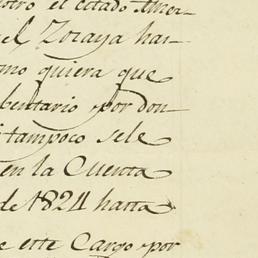 stro el estado Mer-
el Zoraya han-
mo quiera que
bentario por don-
i tampoco sele
en la Cuenta
de 1824 hasta
e este Cargo por